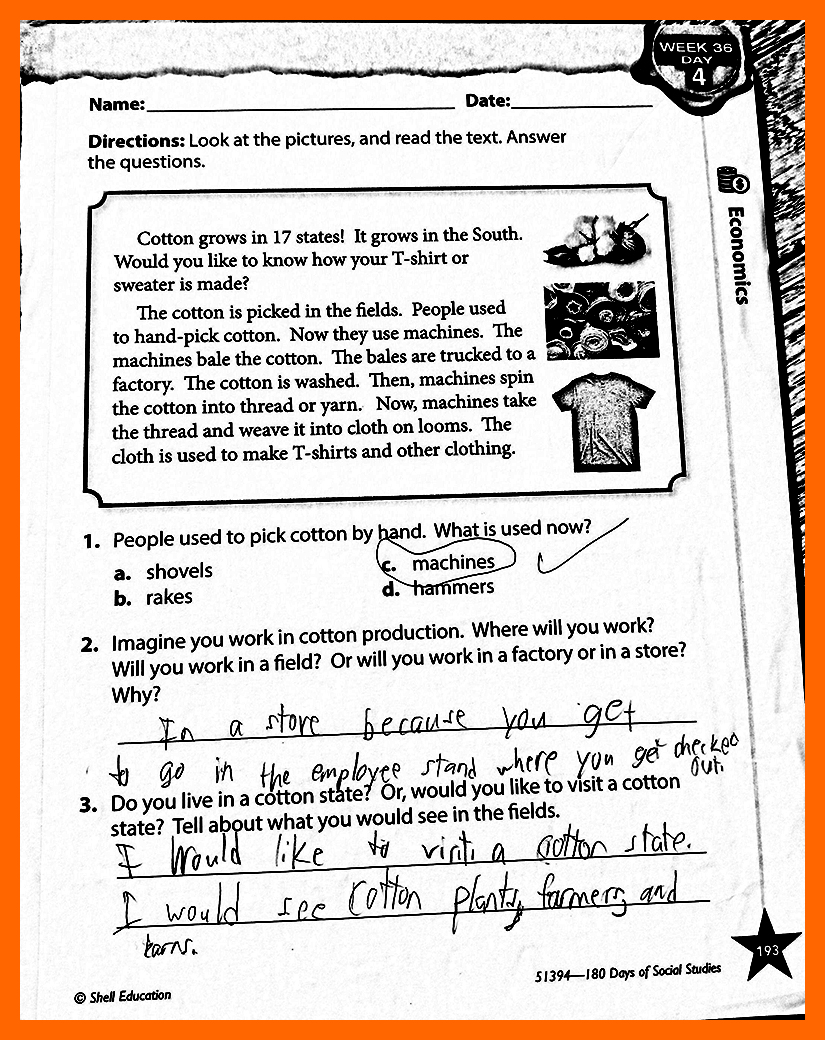 WEEK 36
DAY
4
Name: Date:
Directions: Look at the pictures, and read the text. Answer
the questions.
Economics
Cotton grows in 17 states! It grows in the South.
Would you like to know how your T-shirt or
sweater is made?
The cotton is picked in the fields. People used
to hand-pick cotton. Now they use machines. The
machines bale the cotton. The bales are trucked to a
factory. The cotton is washed. Then, machines spin
the cotton into thread or yarn. Now, machines take
the thread and weave it into cloth on looms. The
cloth is used to make T-shirts and other clothing.
1. People used to pick cotton by hand. What is used now?
a. shovels
b. rakes
c. machines
d. hammers
2. Imagine you work in cotton production. Where will you work?
Will you work in a field? Or will you work in a factory or in a store?
Why?
In a store because you get
to go in the employee stand where you get checked
out.
3. Do you live in a cotton state? Or, would you like to visit a cotton
state? Tell about what you would see in the fields.
I Would like to visit a cotton state.
I would see cotton plants, farmers, and
193
51394—180 Days of Social Studies
© Shell Education